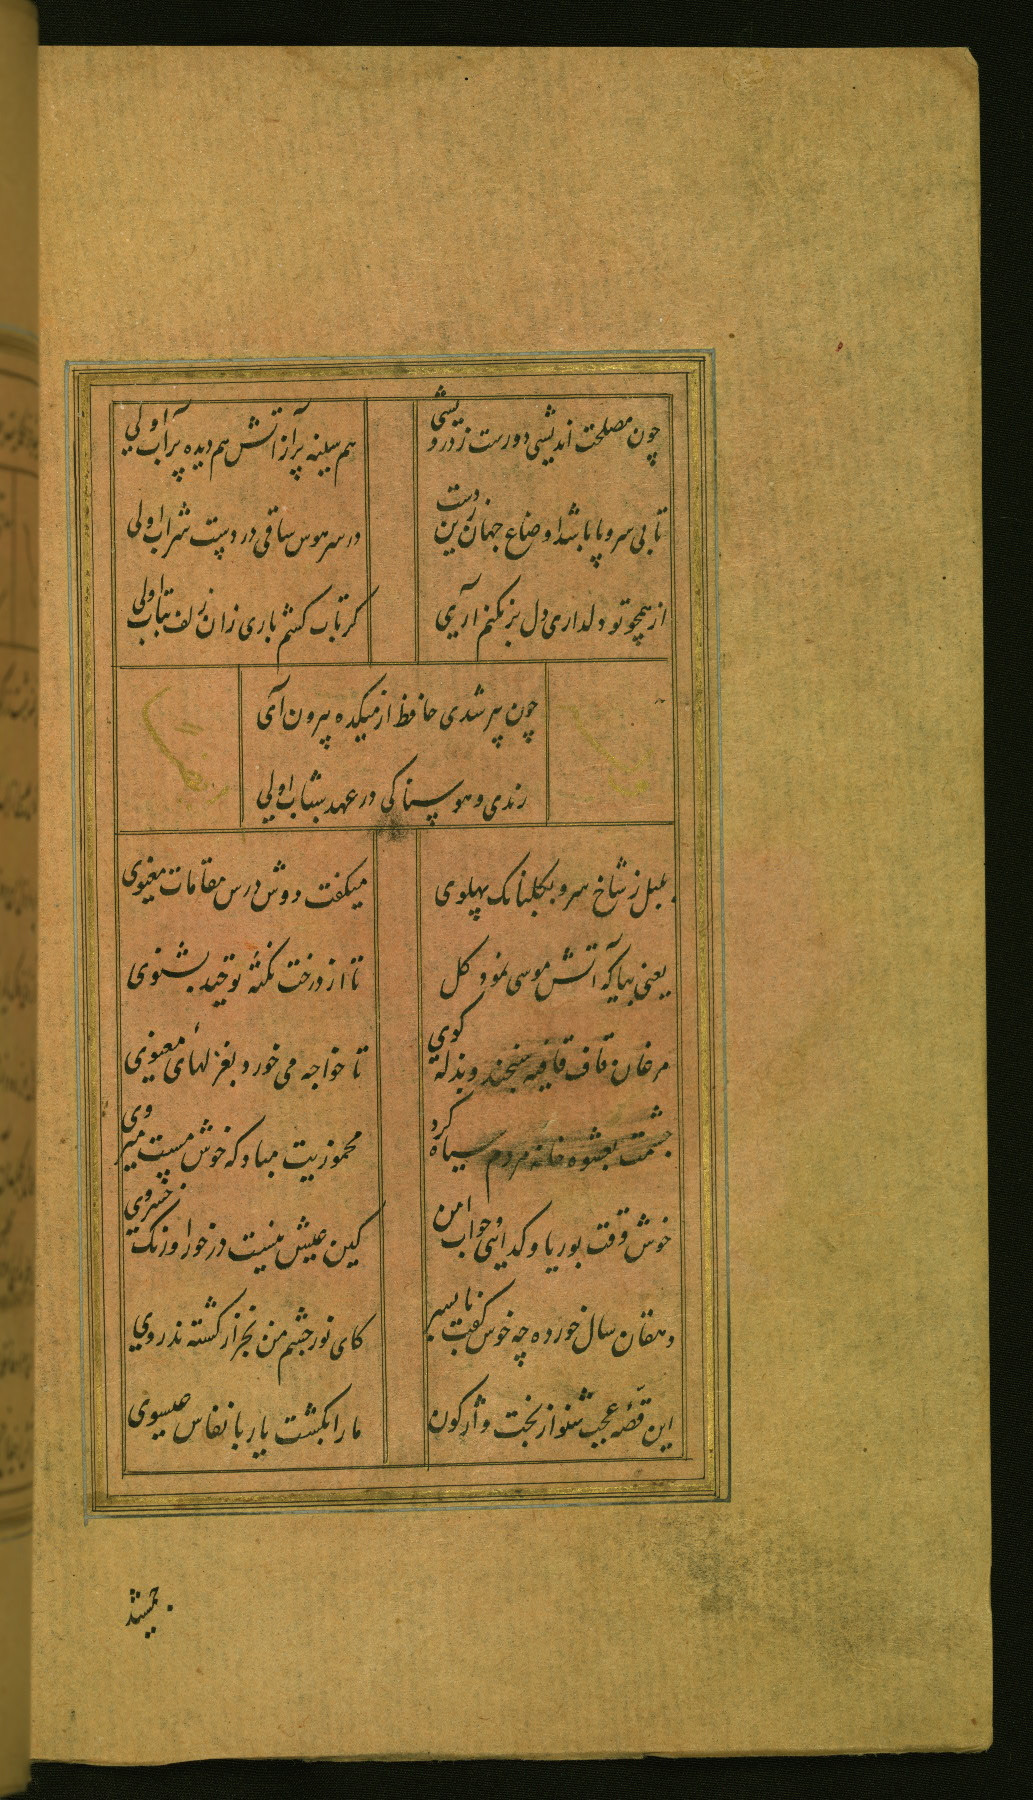 چون مصلحت اندیشی دورست ز درویشی
هم سینه پر از آتش هم دیده پر آب اولی
تا بی سر و پا باشد اوضاع جهان زین دست
در سر هوس ساقی در دست شراب اولی
از همچو تو دلداری دل برنکنم آری
کر تاب کشم باری زان زلف بتاب اولی
چون پیر شدی حافظ از میکده بیرون آی
رندی و هوسناکی در عهد شباب اولی
بلبل ز شاخ سرو بکلبانک پهلوی
میکفت دوش درس مقامات معنوی
یعنی بیا که آتش موسی نمود کل
تا از درخت نکتهٔ توحید بشنوی
مرغان قاف قافیه سنجند و بذله کوی
تا خواجه می خورد بغزلهای معنوی
چشمت بعشوه خانهٔ مردم سیاه کرد
مخموریت مباد که خوش مست میروی
خوش وقت بوریا و کدایی و خواب امن
کین عیش نیست در خور اورنک خسروی
دهقان سال خورده چه خوش کفت با پسر
کای نور چشم من بجز از کشته ندروی
این قصّهٔ عجب شنو از بخت واژکون
ما را بکشت یار بانفاس عیسوی
جمشید